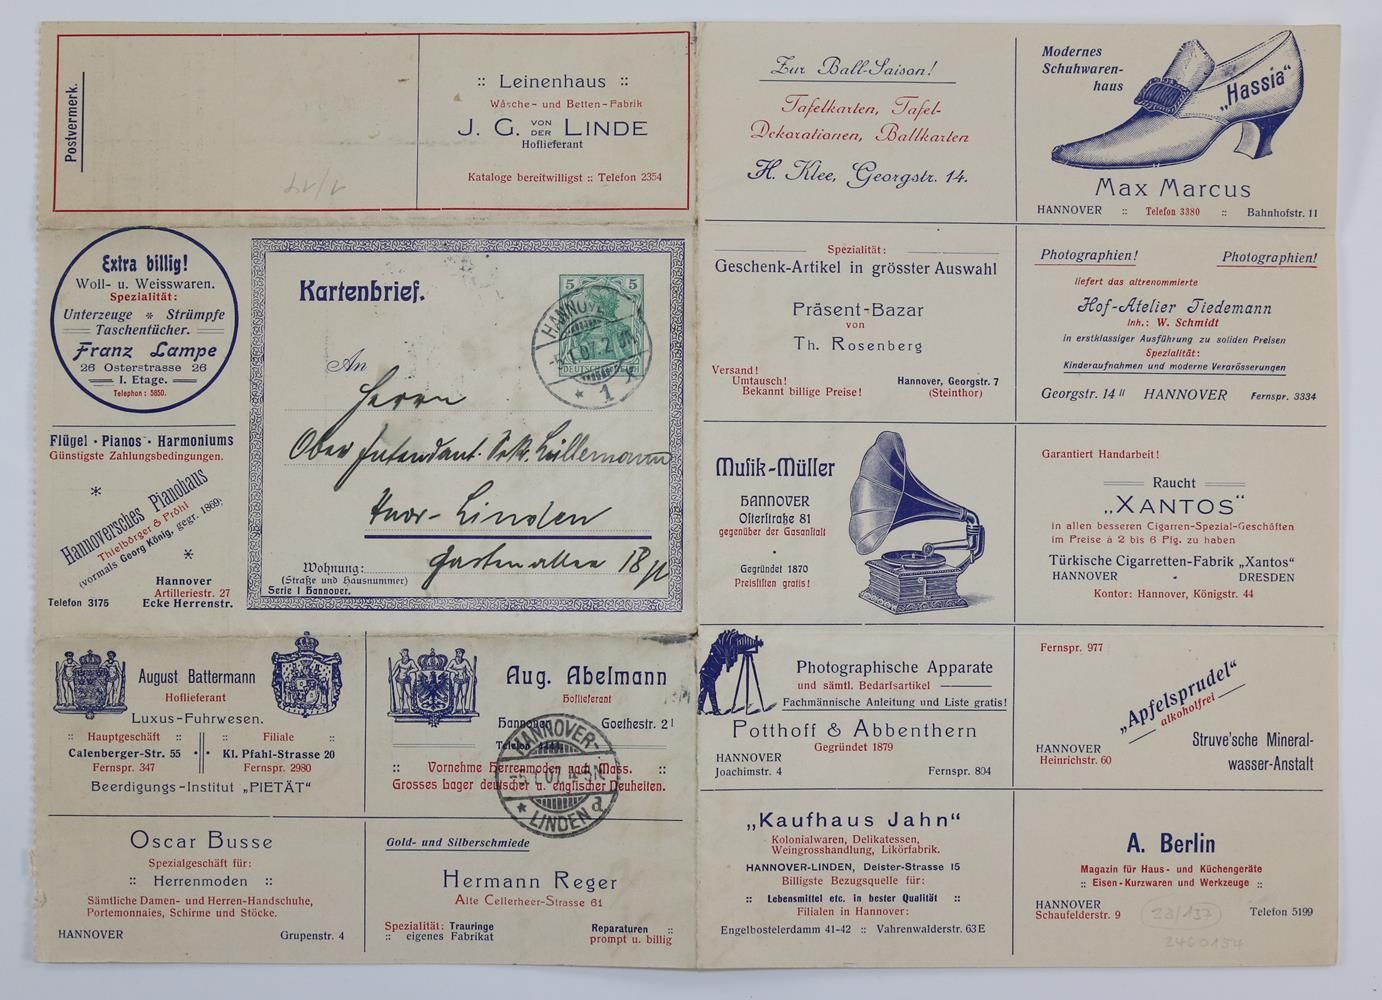 Postvermerk.
:: Leinenhaus ::
Wäsche- und Betten-Fabrik
J. G. VON DER LINDE
Hoflieferant
Kataloge bereitwilligst :: Telefon 2354
Zur Ball-Saison!
Tafelkarten, Tafel-
Dekorationen, Ballkarten
H. Klee, Georgstr. 14.
Modernes
Schuhwaren-
haus
„Hassia“
Max Marcus
HANNOVER :: Telefon 3380 :: Bahnhofstr. 11
Extra billig!
Woll- u. Weisswaren.
Spezialität:
Unterzeuge * Strümpfe
Taschentücher.
Franz Lampe
26 Osterstrasse 26
I. Etage.
Telephon: 5850.
Kartenbrief.
5 5
DEUTSCHES REICH
HANNOVER
-5.1.07.2
* 1
An
Herrn
Ober Intendant. Sekr. Lüllemann
Hann-Linden
Gartenallee 18
Wohnung:
(Straße und Hausnummer)
Serie I Hannover.
Spezialität:
Geschenk-Artikel in grösster Auswahl
Präsent-Bazar
von
Th. Rosenberg
Versand!
Umtausch!
Bekannt billige Preise!
Hannover, Georgstr. 7
(Steinthor)
Photographien! Photographien!
liefert das altrenommierte
Hof-Atelier Tiedemann
Inh.: W. Schmidt
in erstklassiger Ausführung zu soliden Preisen
Spezialität:
Kinderaufnahmen und moderne Verarösserungen
Georgstr. 14 II HANNOVER Fernspr. 3334
Flügel · Pianos · Harmoniums
Günstigste Zahlungsbedingungen.
*
Hannoversches Pianohaus
Thielbörger & Pröhl
(vormals Georg König, gegr. 1869)
*
Hannover
Artilleriestr. 27
Telefon 3175 Ecke Herrenstr.
Musik-Müller
HANNOVER
Osterstraße 81
gegenüber der Gasanstalt
Gegründet 1870
Preislisten gratis!
Garantiert Handarbeit!
Raucht
„XANTOS“
in allen besseren Cigarren-Spezial-Geschäften
im Preise à 2 bis 6 Pfg. zu haben
Türkische Cigaretten-Fabrik „Xantos“
HANNOVER · DRESDEN
Kontor: Hannover, Königstr. 44
August Battermann
Hoflieferant
Luxus-Fuhrwesen.
:: Hauptgeschäft :: :: Filiale ::
Calenberger-Str. 55 Kl. Pfahl-Strasse 20
Fernspr. 347 Fernspr. 2980
Beerdigungs-Institut „PIETÄT“
Aug. Abelmann
Hoflieferant
Hannover Goethestr. 21
Telefon
:: Vornehme Herrenmoden nach Mass. ::
Grosses Lager deutscher u. englischer Neuheiten.
HANNOVER-
-5.1.07.4-5N.
* LINDEN a
Photographische Apparate
und sämtl. Bedarfsartikel
Fachmännische Anleitung und Liste gratis!
Potthoff & Abbenthern
Gegründet 1879
HANNOVER
Joachimstr. 4 Fernspr. 894
Fernspr. 977
„Apfelsprudel“
alkoholfrei
HANNOVER
Heinrichstr. 60
Struve'sche Mineral-
wasser-Anstalt
Oscar Busse
Spezialgeschäft für:
:: Herrenmoden ::
Sämtliche Damen- und Herren-Handschuhe,
Portemonnaies, Schirme und Stöcke.
HANNOVER Grupenstr. 4
Gold- und Silberschmiede
Hermann Reger
Alte Cellerheer-Strasse 61
Spezialität: Trauringe
:: eigenes Fabrikat
Reparaturen ::
prompt u. billig
„Kaufhaus Jahn“
Kolonialwaren, Delikatessen,
Weingrosshandlung, Likörfabrik.
HANNOVER-LINDEN, Deister-Strasse 15
Billigste Bezugsquelle für:
:: Lebensmittel etc. in bester Qualität ::
Filialen in Hannover:
Engelbostelerdamm 41-42 :: Vahrenwalderstr. 63 E
A. Berlin
Magazin für Haus- und Küchengeräte
:: Eisen-Kurzwaren und Werkzeuge ::
HANNOVER
Schaufelderstr. 9 Telefon 5199
23/137
2460134